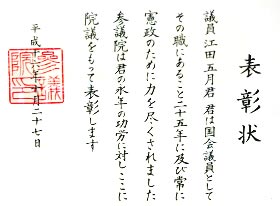 表彰状
議員江田五月君 君は国会議員として
その職にあること二十五年に及び常に
憲政のために力を尽くされました
参議院は君の永年の功労に対しここに
院議をもって表彰します
平成十六年十月二十七日